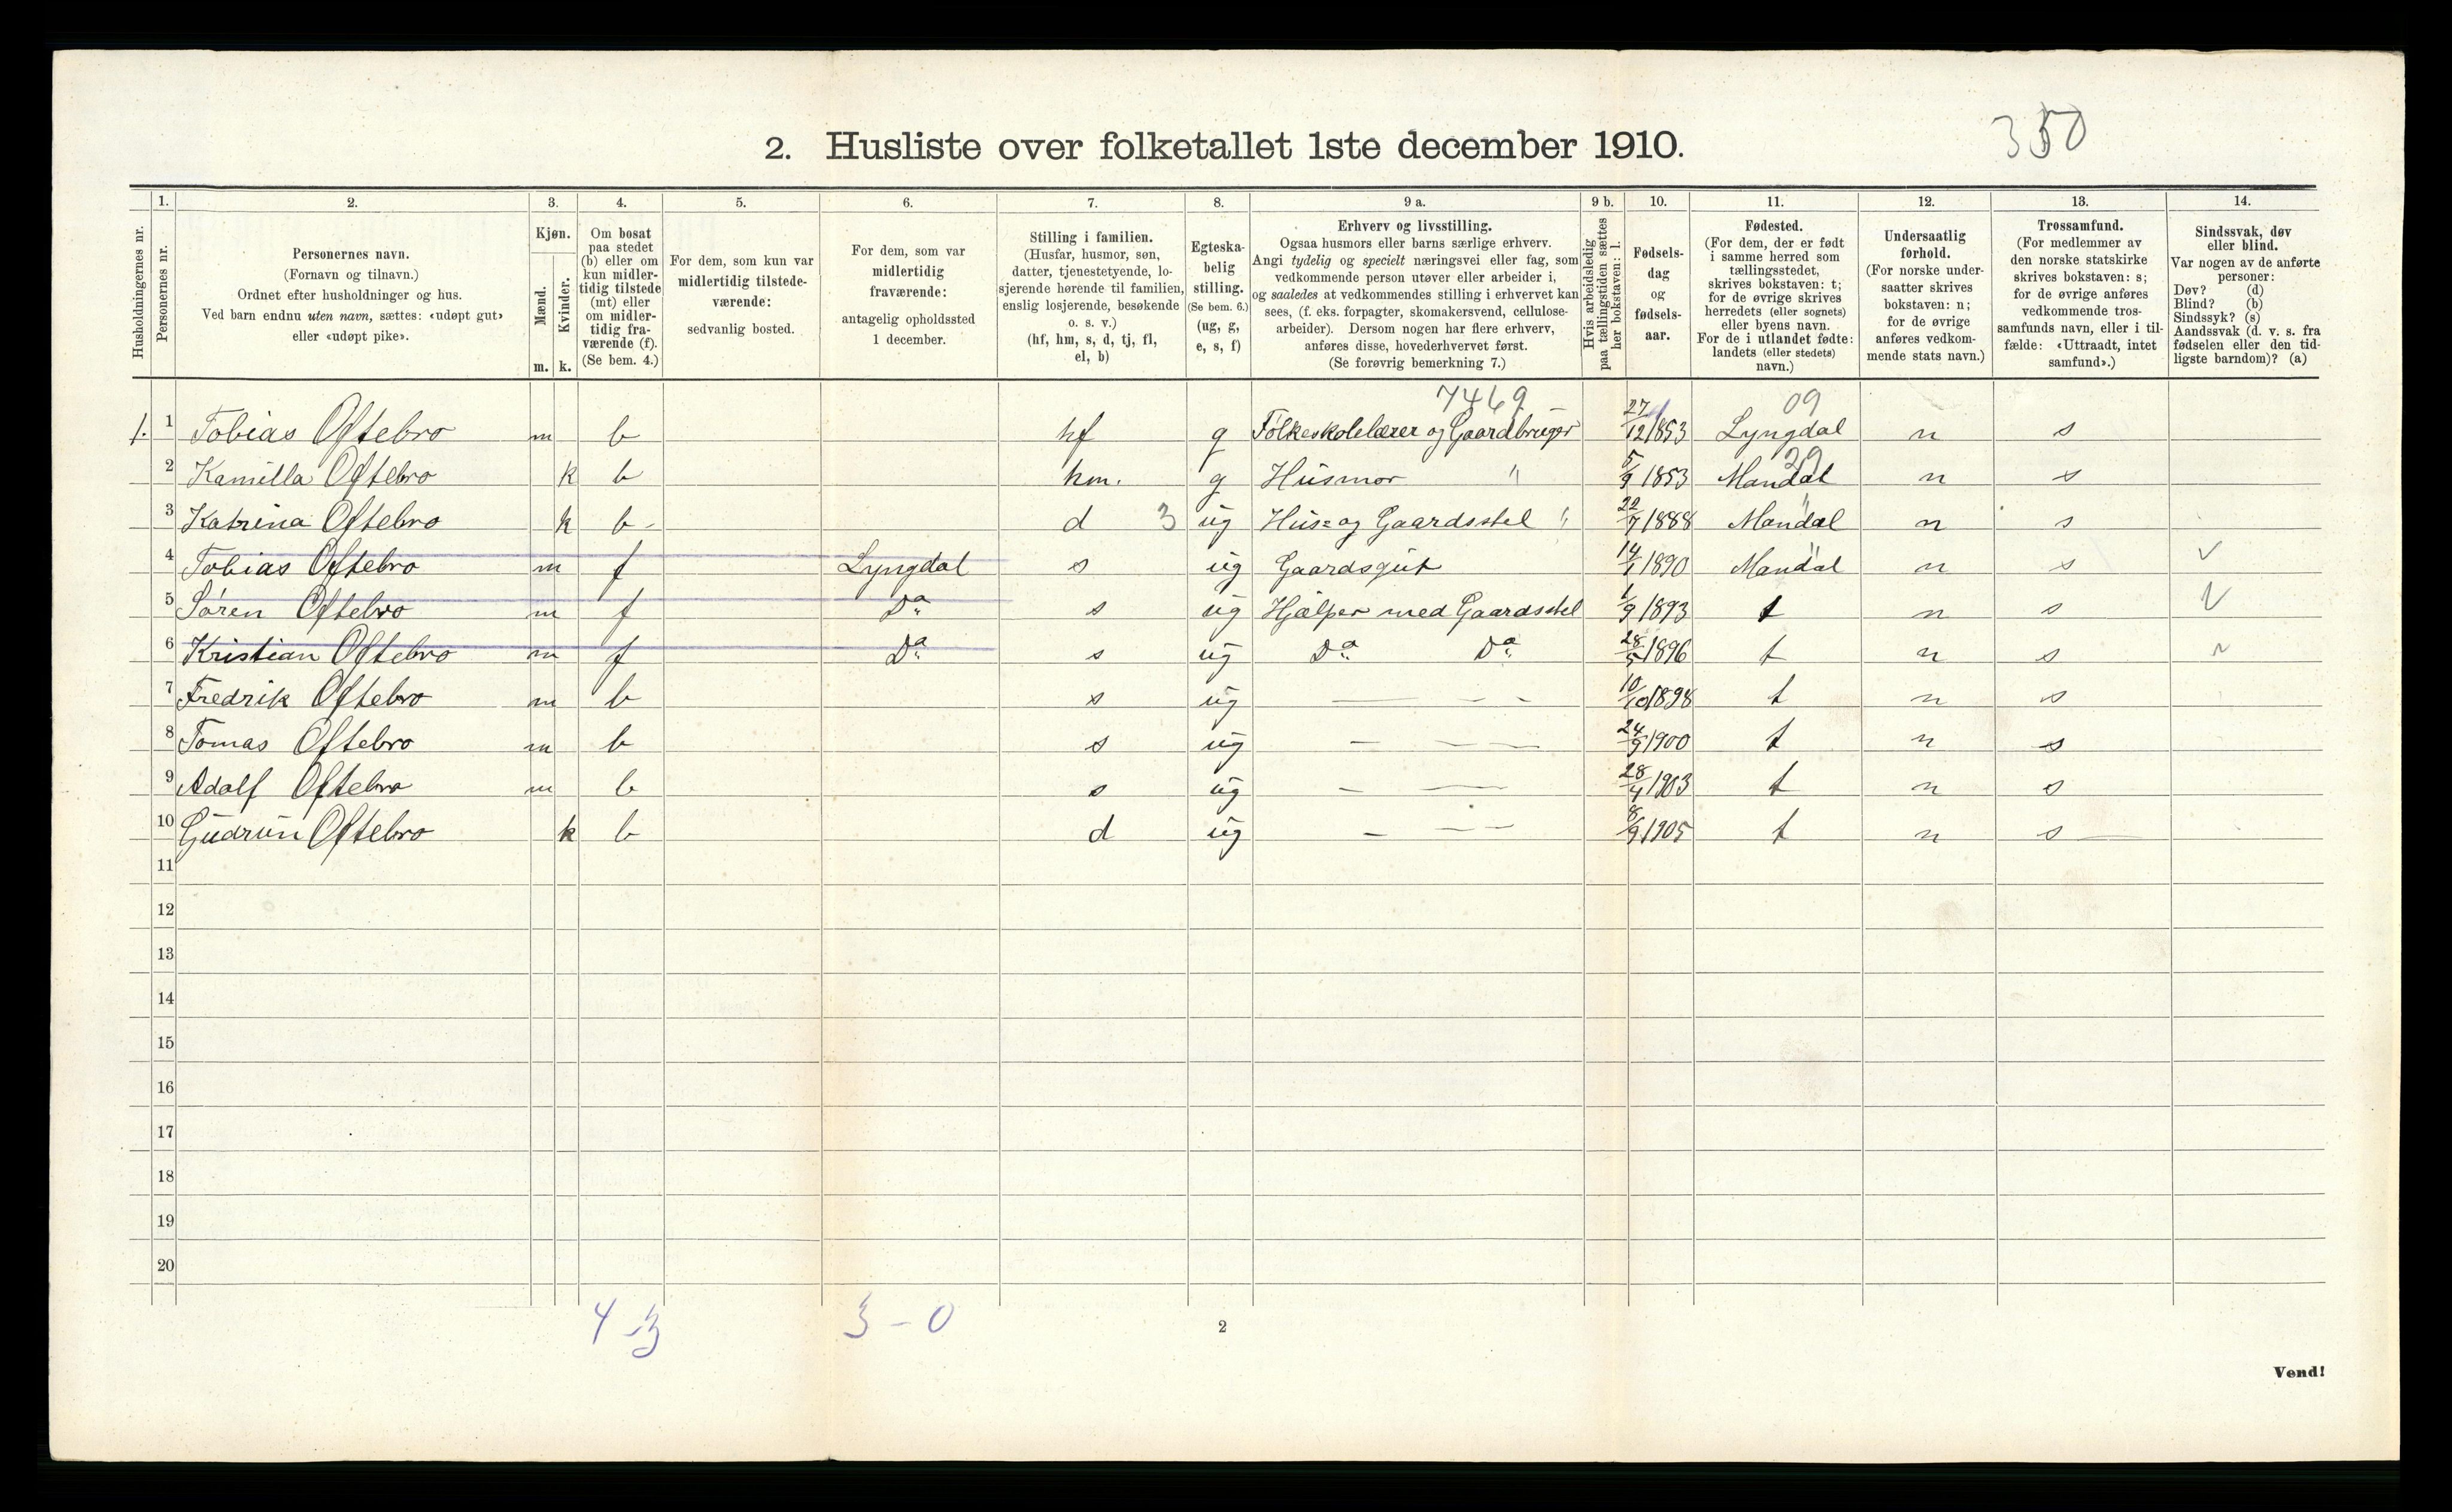 350
2. Husliste over folketallet 1ste december 1910.
1. 2. 3. 4. 5. 6. 7. 8. 9 a. 9 b. 10. 11. 12. 13. 14.
Husholdningernes nr.
Personernes nr.
Personernes navn.
(Fornavn og tilnavn.)
Ordnet efter husholdninger og hus.
Ved barn endnu uten navn, sættes: «udøpt gut»
eller «udøpt pike».
Kjøn.
Mænd.
Kvinder.
m. k.
Om bosat
paa stedet
(b) eller om
kun midler-
tidig tilstede
(mt) eller
om midler-
tidig fra-
værende (f).
(Se bem. 4.)
For dem, som kun var
midlertidig tilstede-
værende:
sedvanlig bosted.
For dem, som var
midlertidig
fraværende:
antagelig opholdssted
1 december.
Stilling i familien.
(Husfar, husmor, søn,
datter, tjenestetyende, lo-
sjerende hørende til familien,
enslig losjerende, besøkende
o. s. v.)
(hf, hm, s, d, tj, fl,
el, b)
Egteska-
belig
stilling.
(Se bem. 6.)
(ug, g,
e, s, f)
Erhverv og livsstilling.
Ogsaa husmors eller barns særlige erhverv.
Angi tydelig og specielt næringsvei eller fag, som
vedkommende person utøver eller arbeider i,
og saaledes at vedkommendes stilling i erhvervet kan
sees, (f. eks. forpagter, skomakersvend, cellulose-
arbeider). Dersom nogen har flere erhverv,
anføres disse, hovederhvervet først.
(Se forøvrig bemerkning 7.)
Hvis arbeidsledig
paa tællingstiden sættes
her bokstaven: l.
Fødsels-
dag
og
fødsels-
aar.
Fødested.
(For dem, der er født
i samme herred som
tællingsstedet,
skrives bokstaven: t;
for de øvrige skrives
herredets (eller sognets)
eller byens navn.
For de i utlandet fødte:
landets (eller stedets)
navn.)
Undersaatlig
forhold.
(For norske under-
saatter skrives
bokstaven: n;
for de øvrige
anføres vedkom-
mende stats navn.)
Trossamfund.
(For medlemmer av
den norske statskirke
skrives bokstaven: s;
for de øvrige anføres
vedkommende tros-
samfunds navn, eller i til-
fælde: «Uttraadt, intet
samfund».)
Sindssvak, døv
eller blind.
Var nogen av de anførte
personer:
Døv? (d)
Blind? (b)
Sindssyk? (s)
Aandssvak (d. v. s. fra
fødselen eller den tid-
ligste barndom)? (a)
7469 09
1. 1 Tobias Oftebro m b hf g Folkeskolelærer og Gaardbruger 27/12 1853 Lyngdal n s
29
2 Kamilla Oftebro k b hm. g Husmor " 5/9 1853 Mandal n s
3 Katrina Oftebro k b d 3 ug Hus= og Gaardsstel " 22/7 1888 Mandal n s
4 Tobias Oftebro m f Lyngdal s ug Gaardsgut 14/1 1890 Mandal n s
5 Søren Oftebro m f Do s ug Hjælper med Gaardsstel 1/9 1893 t n s
6 Kristian Oftebro m f Do s ug Do Do 28/5 1896 t n s
7 Fredrik Oftebro m b s ug — - - 10/10 1898 t n s
8 Tomas Oftebro m b s ug - — — 24/9 1900 t n s
9 Adolf Oftebro m b s ug - — 28/4 1903 t n s
10 Gudrun Oftebro k b d ug - — — 8/9 1905 t n s
11
12
13
14
15
16
17
18
19
20
4-3 3-0
2
Vend!